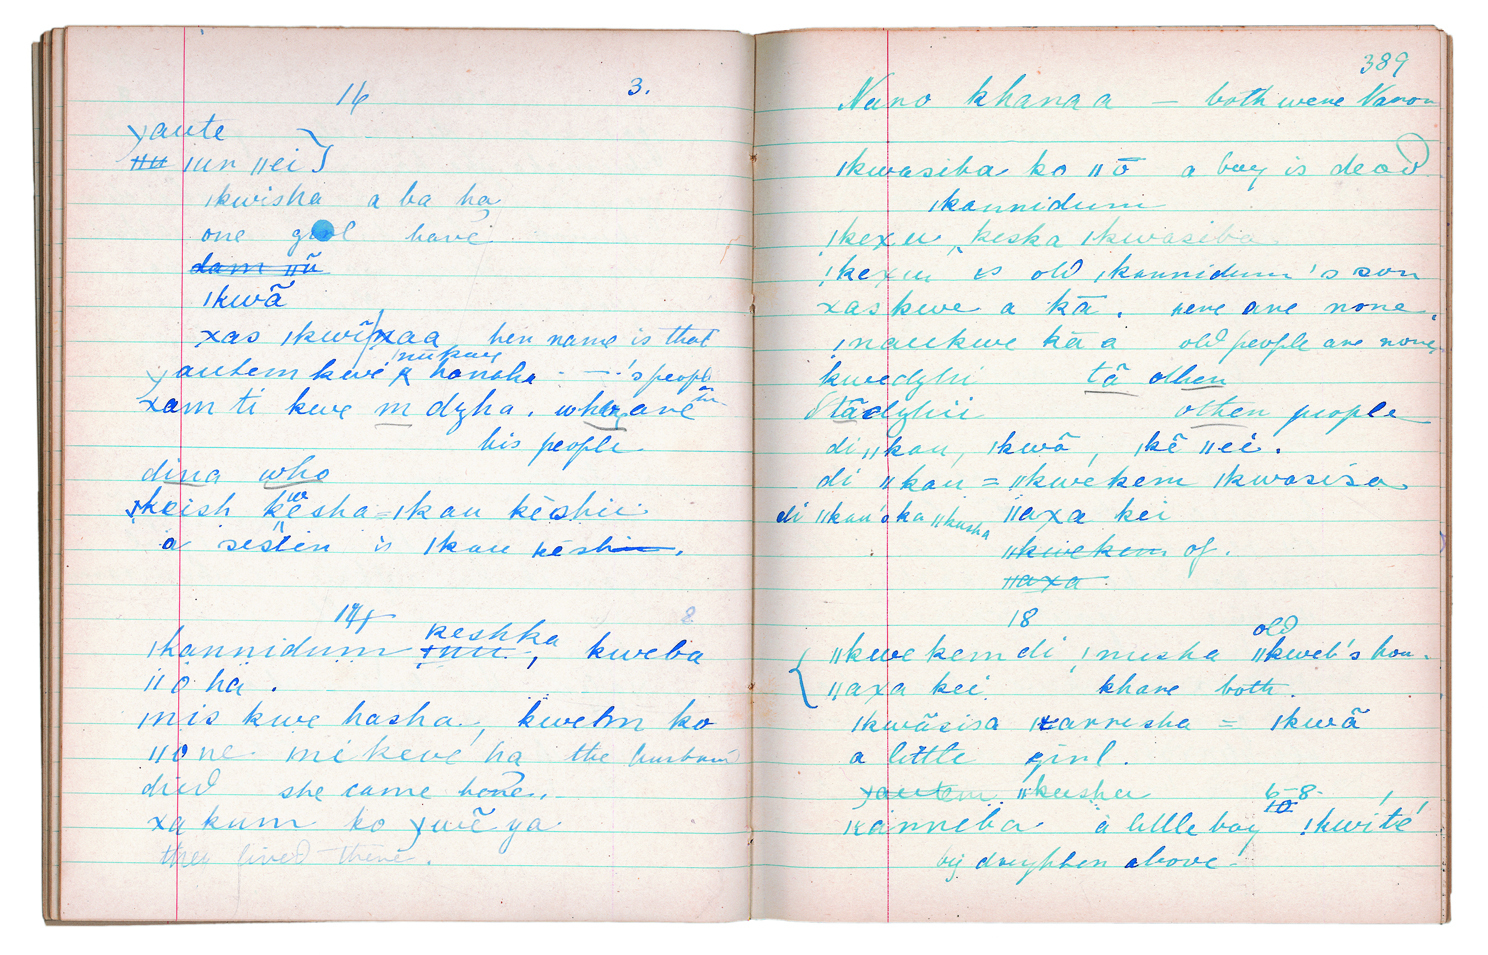 16 3.
yaute
ıun ııei
ıkwisha a ba ha
one girl have
dam ııũ
ıkwã
xas ıkwĩ/xaa her name is that
ınukwe
yautem kwe hanoha — 's people
xam ti kwe m dyha. who are
his people.
dina who
kẽsha = ıkau kẽshii
a sister is ıkau kẽshi.
17
8
keshka
ıkannidum , kweba
ııo ha.
ınis kwe hasha, kwebm ko
ııone mikewe ha the husband
died she came home.
xakum ko ya
they lived there.
389
Nano khanaa — both were Naron
ıkwasiba ko ıı ō a boy is dead
ıkannidum
ıkexu keska ıkwasiba
ıkexu is old ıkannidum's son
xaskwe a kā. here are none.
ınaukwe kā a old people are none
kwedzhi tã other
tãdzhii other people
di ııkau, ıkwã, ıkẽ ııei.
di ııkau = ııkwekem ıkwasisa
di ııkau'oka ııkusha ııaxa kei
ııkwekem of.
ııaxa
18
old
ııkwekem di ınusha ııkweb's hou-
ııaxa kei khare both.
ıkwãsisa ıxarresha = ıkwã
a little girl.
yautem ııkusha 6-8.
10
ıxanneba a little boy !kwité
big daughter above-